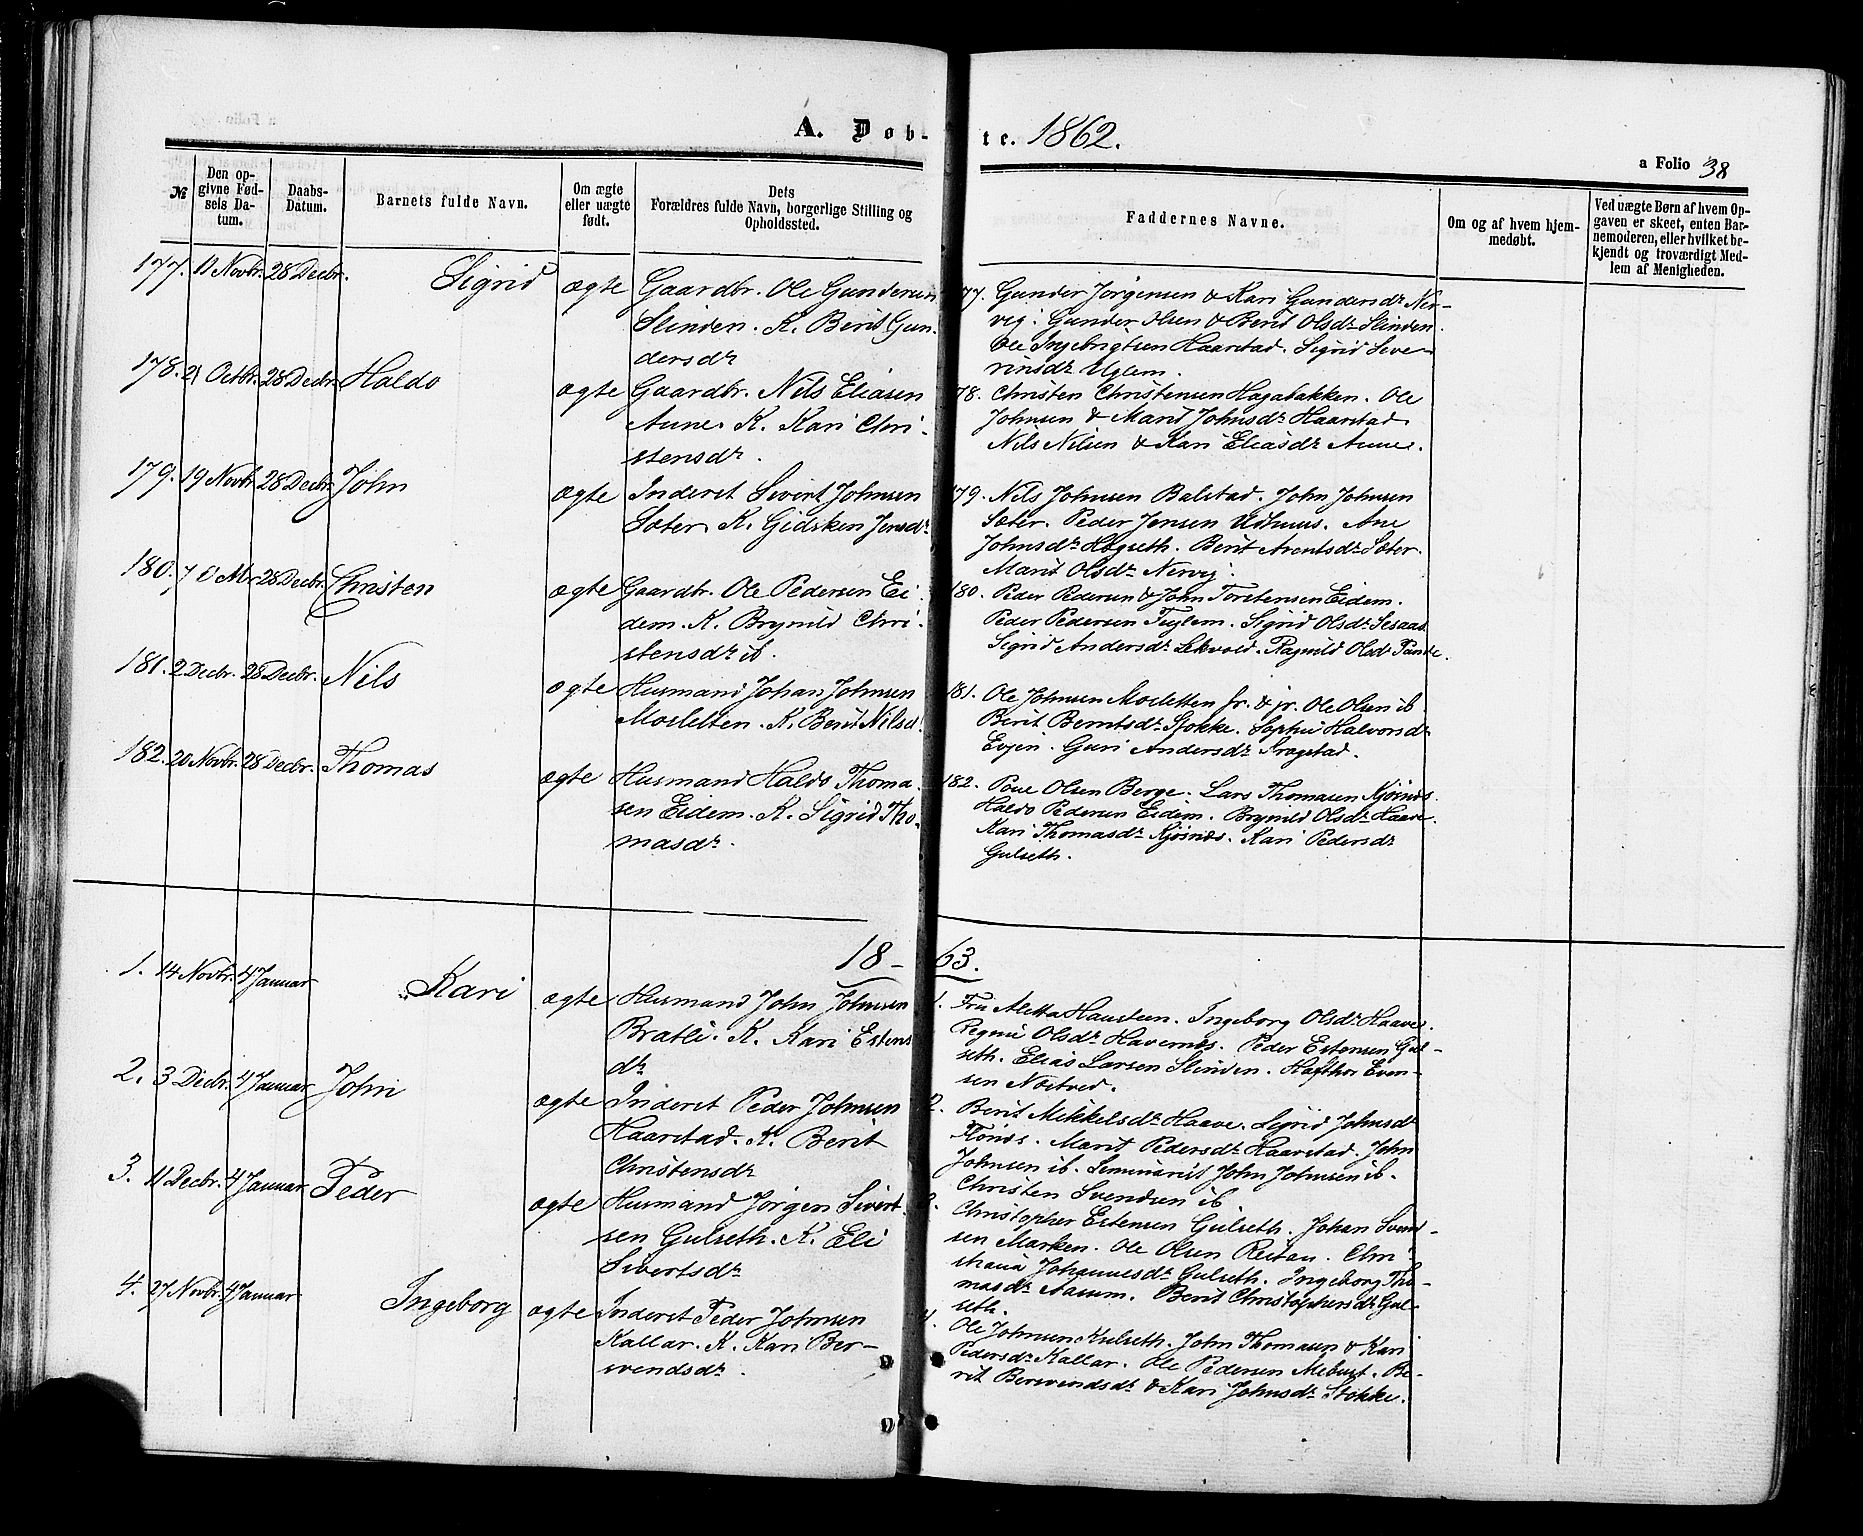 A. Døb-
te. 1862.
a Folio 38
№
Den op-
givne Fød-
sels Da-
tum.
Daabs-
Datum.
Barnets fulde Navn.
Om ægte
eller uægte
født.
Dets
Forældres fulde Navn, borgerlige Stilling og
Opholdssted.
Faddernes Navne.
Om og af hvem hjem-
medøbt.
Ved uægte Børn af hvem Op-
gaven er skeet, enten Bar-
nemoderen, eller hvilket be-
kjendt og troværdigt Med-
lem af Menigheden.
177. 11 Novbr. 28 Decbr. Sigrid ægte Gaardbr. Ole Gundersen
Slinden. K. Berit Gun-
dersdr
77. Gunder Jørgensen & Kari Gundersdr Ner-
vig. Gunder Olsen & Berit Olsdr Slinden.
Ole Ingebrigtsen Haarstad. Sigrid Seve-
rinsdr Uglem.
178. 21 Octbr. 28 Decbr. Haldo ægte Gaardbr. Nils Eliasen
Aune. K. Kari Chri-
stensdr.
78. Christen Christensen Hagabakken. Ole
Johnsen & Marit Johnsdr Haarstad
Nils Nilsen & Kari Eliasdr Aune.
179. 19 Novbr. 28 Decbr. John ægte Inderst Sivert Johnsen
Sæter. K. Gidsken Jensdr
179. Nils Johnsen Balstad. John Johnsen
Sæter. Peder Jensen Udhuus. Ane
Johnsdr Høgseth. Berit Arentsdr Sæter.
Marit Olsdr Nervig.
180. 28 Decbr. Christen ægte Gaardbr. Ole Pedersen Ei-
dem. K. Brynild Chri-
stensdr ib.
180. Peder Pedersen & John Torstensen Eidem.
Peder Pedersen Fuglem. Sigrid Olsdr Sesaas
Sigrid Andersdr Lekvold. Ragnild Olsdr
181. 2 Decbr. 28 Decbr. Nils ægte Husmand Johan Johnsen
Mosletten. K. Berit Nilsd.
181. Ole Johnsen Mosletten sr. & jr. Ole Olsen ib
Berit Berntsdr Stokke. Sophie Halvorsdr
Evjen. Guri Andersdr
182. 20 Novbr. 28 Decbr. Thomas ægte Husmand Haldo Thoma-
sen Eidem. K. Sigrid Tho-
masdr.
182. Poul Olsen Berge. Lars Thomasen Kjøsnes.
Haldo Pedersen Eidem. Brynild Olsdr Haave.
Kari Thomasdr Kjøsnes. Kari Pedersdr
Gulseth.
18-63.
1. 14 Novbr. 4 Januar Kari ægte Husmand John Johnsen
Bratli. K. Kari Estens
dr
1. Fru Aletta Hansteen. Ingeborg Olsdr Haave.
Regine Olsdr Havernes. Peder Estensen Gul-
seth. Elias Larsen Slinden. Hafthor Even-
sen Næstved.
2. 3 Decbr. 4 Januar John ægte Inderst Peder Johnsen
Haarstad. K. Berit
Christensdr
2. Berit Mikkelsdr Haave. Sigrid Johnsdr
Flønes. Marit Pedersdr Haarstad. John
Johnsen ib. Seminarist John Johnsen ib.
Christen Svendsen ib
3. 11 Decbr. 4 Januar Peder ægte Husmand Jørgen Sivert-
sen Gulseth. K. Eli
Sivertsdr
3. Christopher Estensen Gulseth. Johan Svend-
sen Marken. Ole Olsen Reitan. Chri-
stiana Johannesdr Gulseth. Ingeborg Tho-
masdr Aasum. Berit Christophersdr Gul-
seth.
4. 27 Novbr. 4 Januar Ingeborg ægte Inderst Peder Johnsen
Kallar. K. Kari Ber-
svendsdr.
4. Ole Johnsen Kulseth. John Thomasen & Kari
Pedersdr Kallar. Ole Pedersen Mebust. Be-
rit Bersvendsdr & Kari Johnsdr Stokke.